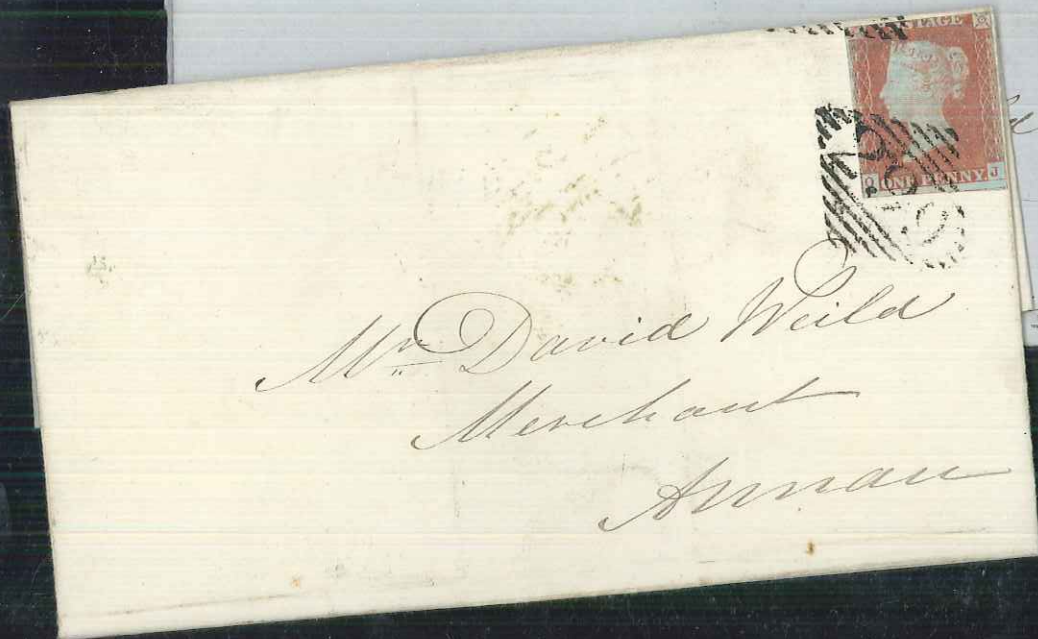 POSTAGE
ONE PENNY
J
Mr. David Weild
Merchant
Annan